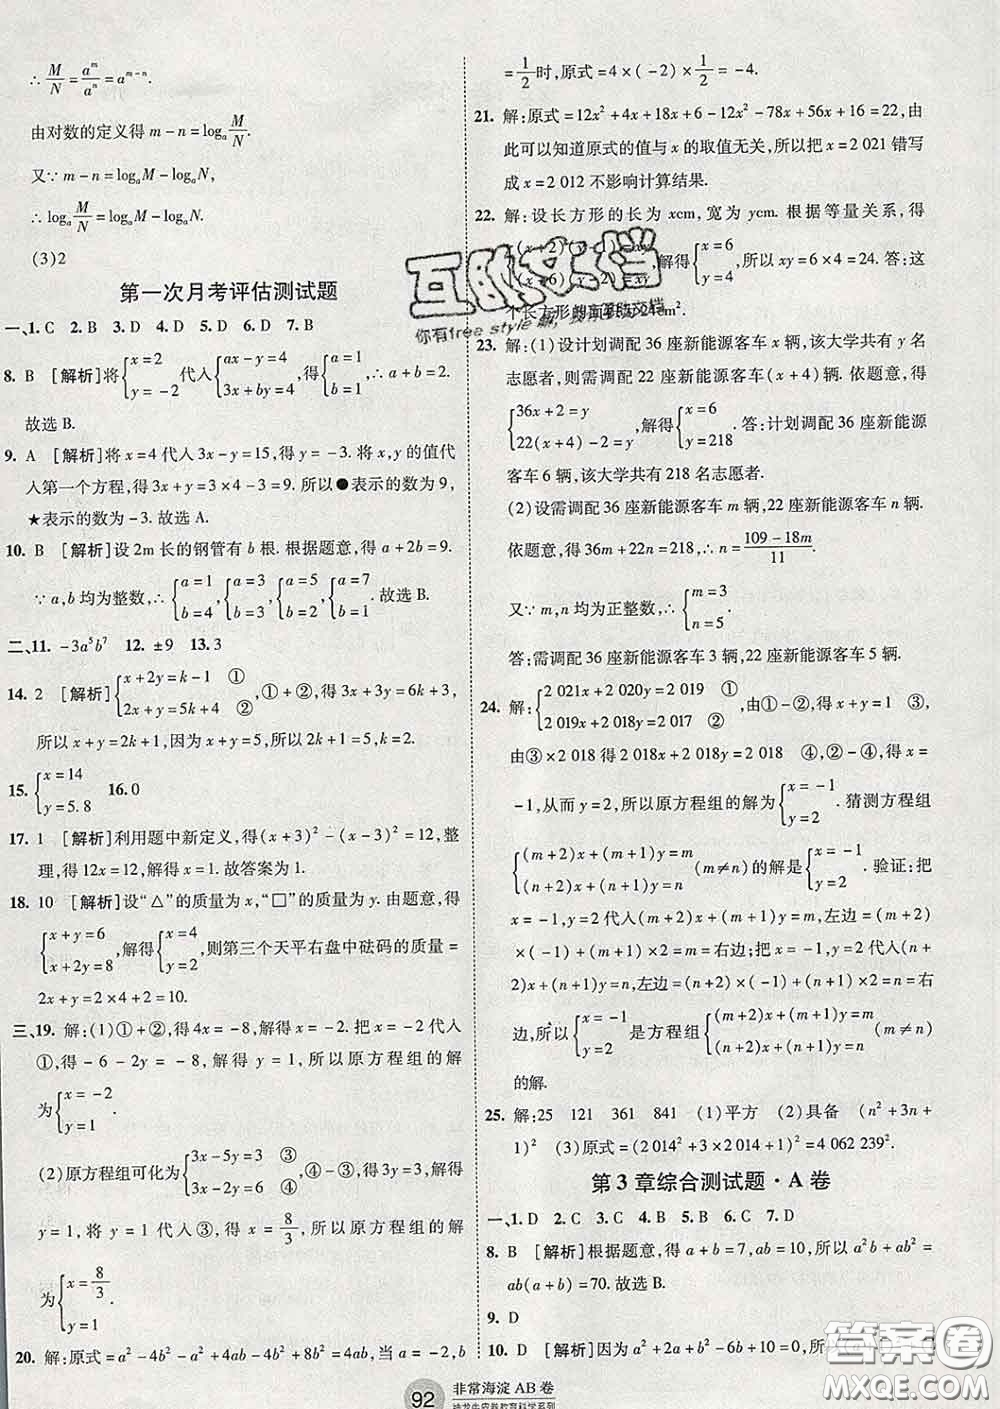 ∴ M/N = a^m/a^n = a^(m-n).
由对数的定义得 m-n=logₐ M/N.
又∵ m-n=logₐM-logₐN,
∴ logₐ M/N = logₐM-logₐN.
(3)2
第一次月考评估测试题
一、1. C 2. B 3. D 4. D 5. D 6. D 7. B
8. B [解析]将{x=2 y=-2 代入{ax-y=4 3x+by=4, 得{a=1 b=1, ∴a+b=2.
故选 B.
9. A [解析]将 x=4 代入 3x-y=15,得 y=-3. 将 x,y 的值代
入第一个方程,得 3x+y=3×4-3=9. 所以●表示的数为 9,
★表示的数为-3. 故选 A.
10. B [解析]设 2m 长的钢管有 b 根. 根据题意,得 a+2b=9.
∵a,b 均为整数,∴{a=1 b=4, {a=3 b=3, {a=5 b=2, {a=7 b=1. 故选 B.
二、11. -3a⁵b⁷ 12. ±9 13. 3
14. 2 [解析]{x+2y=k-1 ① 2x+y=5k+4 ②,①+②,得 3x+3y=6k+3,
所以 x+y=2k+1,因为 x+y=5,所以 2k+1=5,k=2.
15. {x=14 y=5.8 16. 0
17. 1 [解析]利用题中新定义,得(x+3)²-(x-3)²=12,整
理,得 12x=12,解得 x=1. 故答案为 1.
18. 10 [解析]设“△”的质量为 x,“□”的质量为 y. 由题意,得
{x+y=6 x+2y=8,解得{x=4 y=2,则第三个天平右盘中砝码的质量=
2x+y=2×4+2=10.
三、19. 解:(1)①+②,得 4x=-8,解得 x=-2. 把 x=-2 代入
①,得-6-2y=-8,解得 y=1,所以原方程组的解
为{x=-2 y=1.
(2)原方程组可化为{3x-5y=3 ③ 3x-2y=6 ④,④-③,得 3y=3,解得
y=1,将 y=1 代入③,得 x=8/3,所以原方程组的解
为{x=8/3 y=1
20. 解:原式=a²-4b²-a²+4ab-4b²+8b²=4ab,当 a=-2,b
=1/2时,原式=4×(-2)×1/2=-4.
21. 解:原式=12x²+4x+18x+6-12x²-78x+56x+16=22,由
此可以知道原式的值与 x 的取值无关,所以把 x=2 021 错写
成 x=2 012 不影响计算结果.
22. 解:设长方形的长为 xcm,宽为 ycm. 根据等量关系,得
解得{x=6 y=4,所以 xy=6×4=24. 答:这
个长方形的面积为24cm².
23. 解:(1)设计划调配 36 座新能源客车 x 辆,该大学共有 y 名
志愿者,则需调配 22 座新能源客车(x+4)辆. 依题意,得
{36x+2=y 22(x+4)-2=y,解得{x=6 y=218. 答:计划调配 36 座新能源
客车 6 辆,该大学共有 218 名志愿者.
(2)设需调配 36 座新能源客车 m 辆,22 座新能源客车 n 辆.
依题意,得 36m+22n=218,∴n=(109-18m)/11.
又∵m,n 均为正整数,∴{m=3 n=5.
答:需调配 36 座新能源客车 3 辆,22 座新能源客车 5 辆.
24. 解:{2 021x+2 020y=2 019 ① 2 019x+2 018y=2 017 ②,由①-②,得 x+y=1 ③
由③×2 018 得 2 018x+2 018y=2 018 ④,②-④,得 x=
-1,从而 y=2,所以原方程组的解为{x=-1 y=2. 猜测方程组
{(m+2)x+(m+1)y=m (n+2)x+(n+1)y=n (m≠n)的解是{x=-1 y=2. 验证:把
x=-1,y=2 代入(m+2)x+(m+1)y=m,左边=(m+2)
×(-1)+(m+1)×2=m=右边;把 x=-1,y=2 代入(n+
2)x+(n+1)y=n,左边=(n+2)×(-1)+(n+1)×2=n=右
边,所以{x=-1 y=2 是方程组{(m+2)x+(m+1)y=m (n+2)x+(n+1)y=n (m≠n)
的解.
25. 解:25 121 361 841 (1)平方 (2)具备 (n²+3n+
1)² (3)原式=(2 014²+3×2 014+1)²=4 062 239².
第 3 章综合测试题·A 卷
一、1. D 2. C 3. C 4. B 5. B 6. C 7. D
8. B [解析]根据题意,得 a+b=7,ab=10,所以 a²b+ab²=
ab(a+b)=70. 故选 B.
9. D
10. D [解析]因为 a²+2a+b²-6b+10=0,所以
92 非常海淀 AB 卷
互助文档
答案圈
MXQE.COM